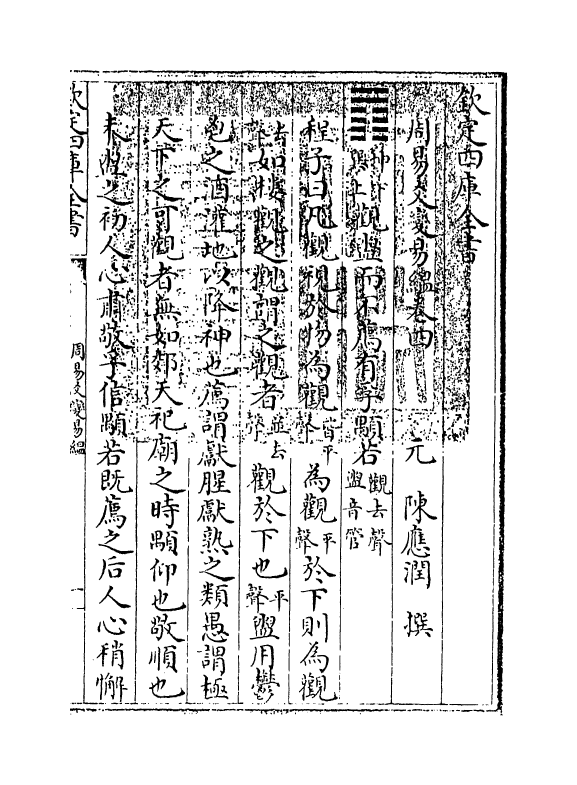 欽定四庫全書
周易爻變易縕卷四
元 陳應潤 撰
觀盥而不薦有孚顒若觀去聲盥音管
程子曰凡觀視於物為觀皆平聲為觀平聲於下則為觀
去聲如樓觀之觀謂之觀者並去聲觀於下也平聲盥用鬱
鬯之酒灌地以降神也薦謂獻腥獻熟之類愚謂極
天下之可觀者無如郊天祀廟之時顒仰也敬順也
未盥之初人心肅敬孚信顒若既薦之后人心稍懈
欽定四庫全書
周易爻變易縕
一